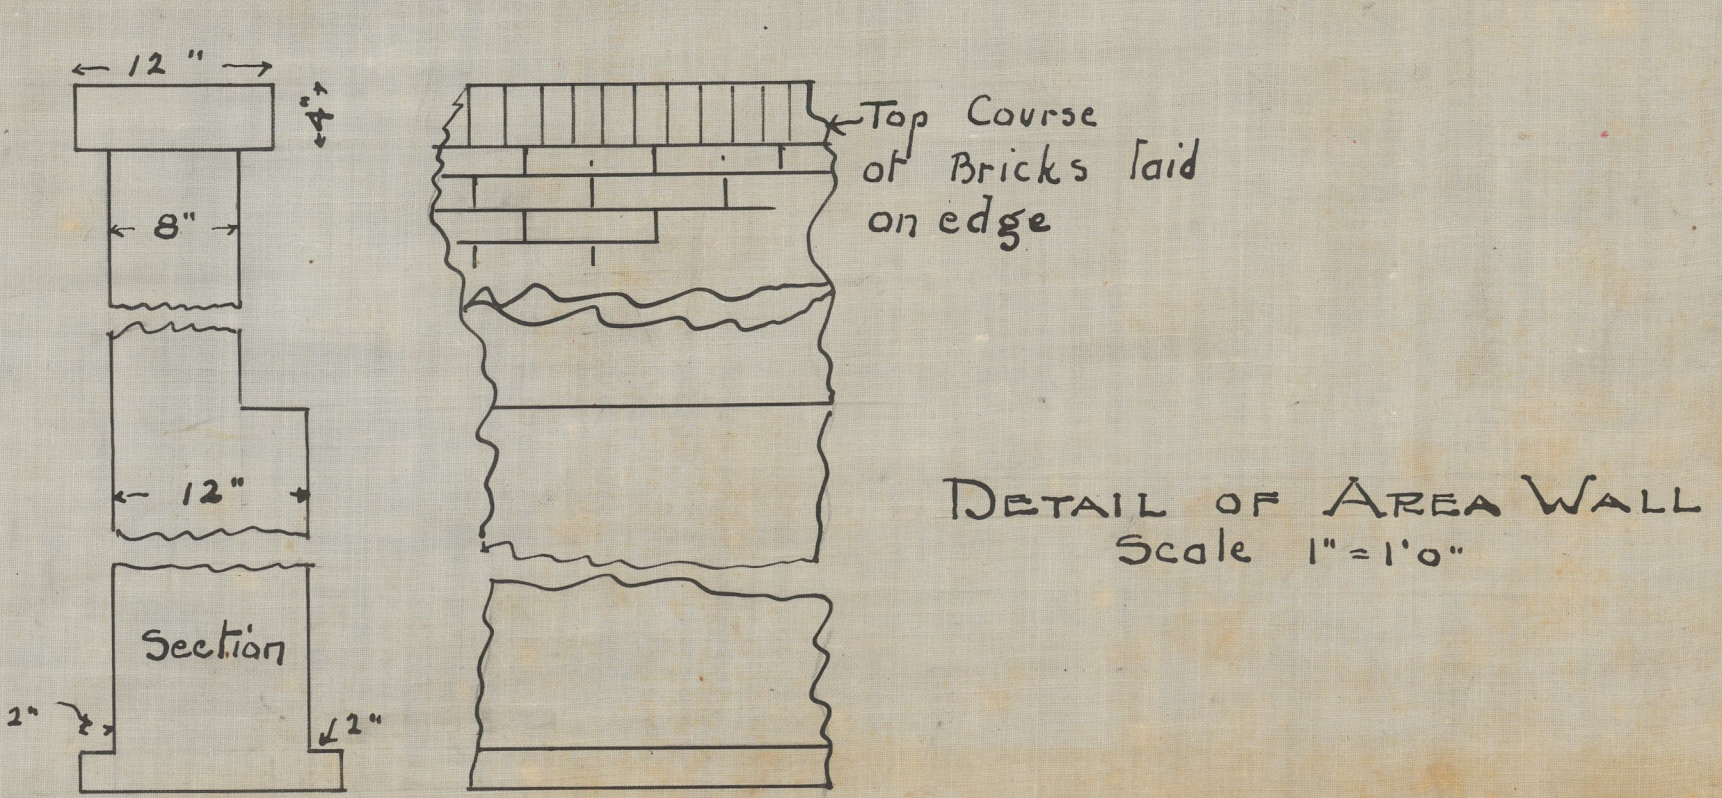 12"
4"
8"
12"
Section
2"
2"
Top Course
of Bricks laid
on edge
DETAIL OF AREA WALL
Scale 1" = 1'0"